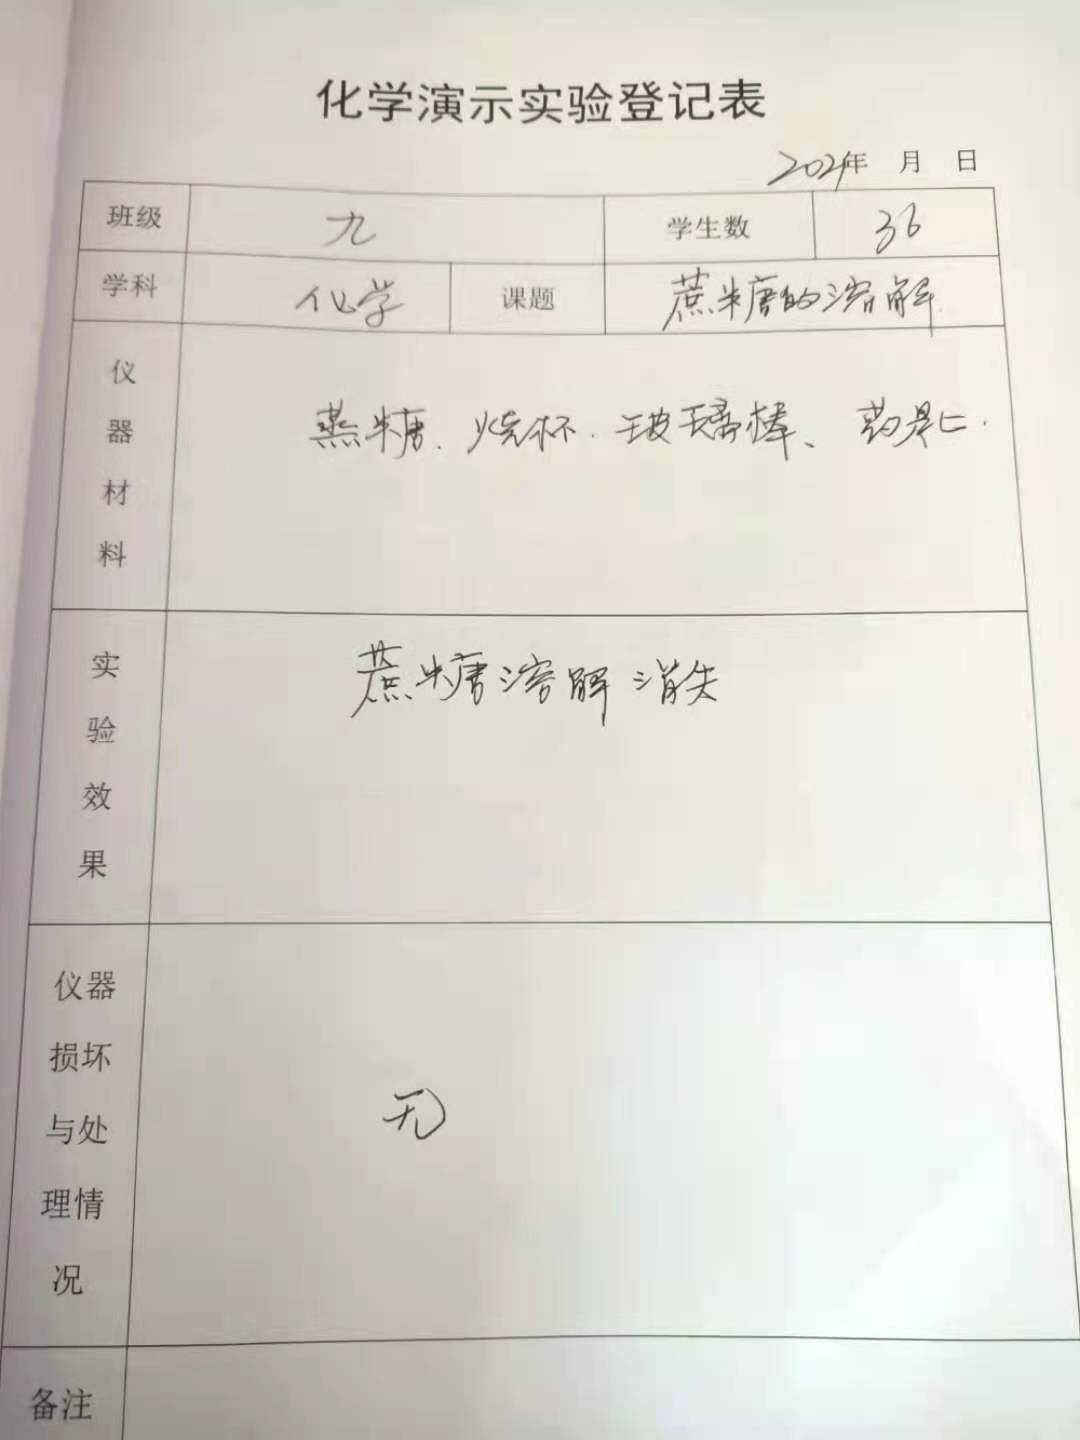 化学演示实验登记表
2021年 月 日
班级 九 学生数 36
学科 化学 课题 蔗糖的溶解
仪器材料 蔗糖、烧杯、玻璃棒、药匙.
实验效果 蔗糖溶解消失
仪器损坏与处理情况 无
备注